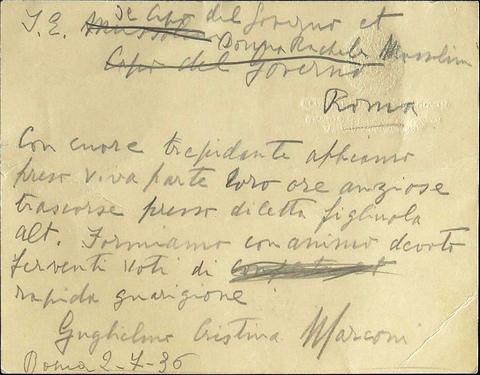 S. E. il Capo del Governo et
Donna Rachele Mussolini
Capo del Governo
Roma
Con cuore trepidante abbiamo
preso viva parte loro ore ansiose
trascorse presso diletta figliuola
alt. Formiamo con animo devoto
ferventi voti di
rapida guarigione
Guglielmo Cristina Marconi
Roma 2-7-36